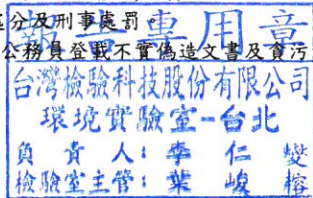 處分及刑事處罰。
報告專用章
公務員登載不實偽造文書及貪污
台灣檢驗科技股份有限公司
環境實驗室-台北
負責人：李仁燮
檢驗室主管：葉峻榕